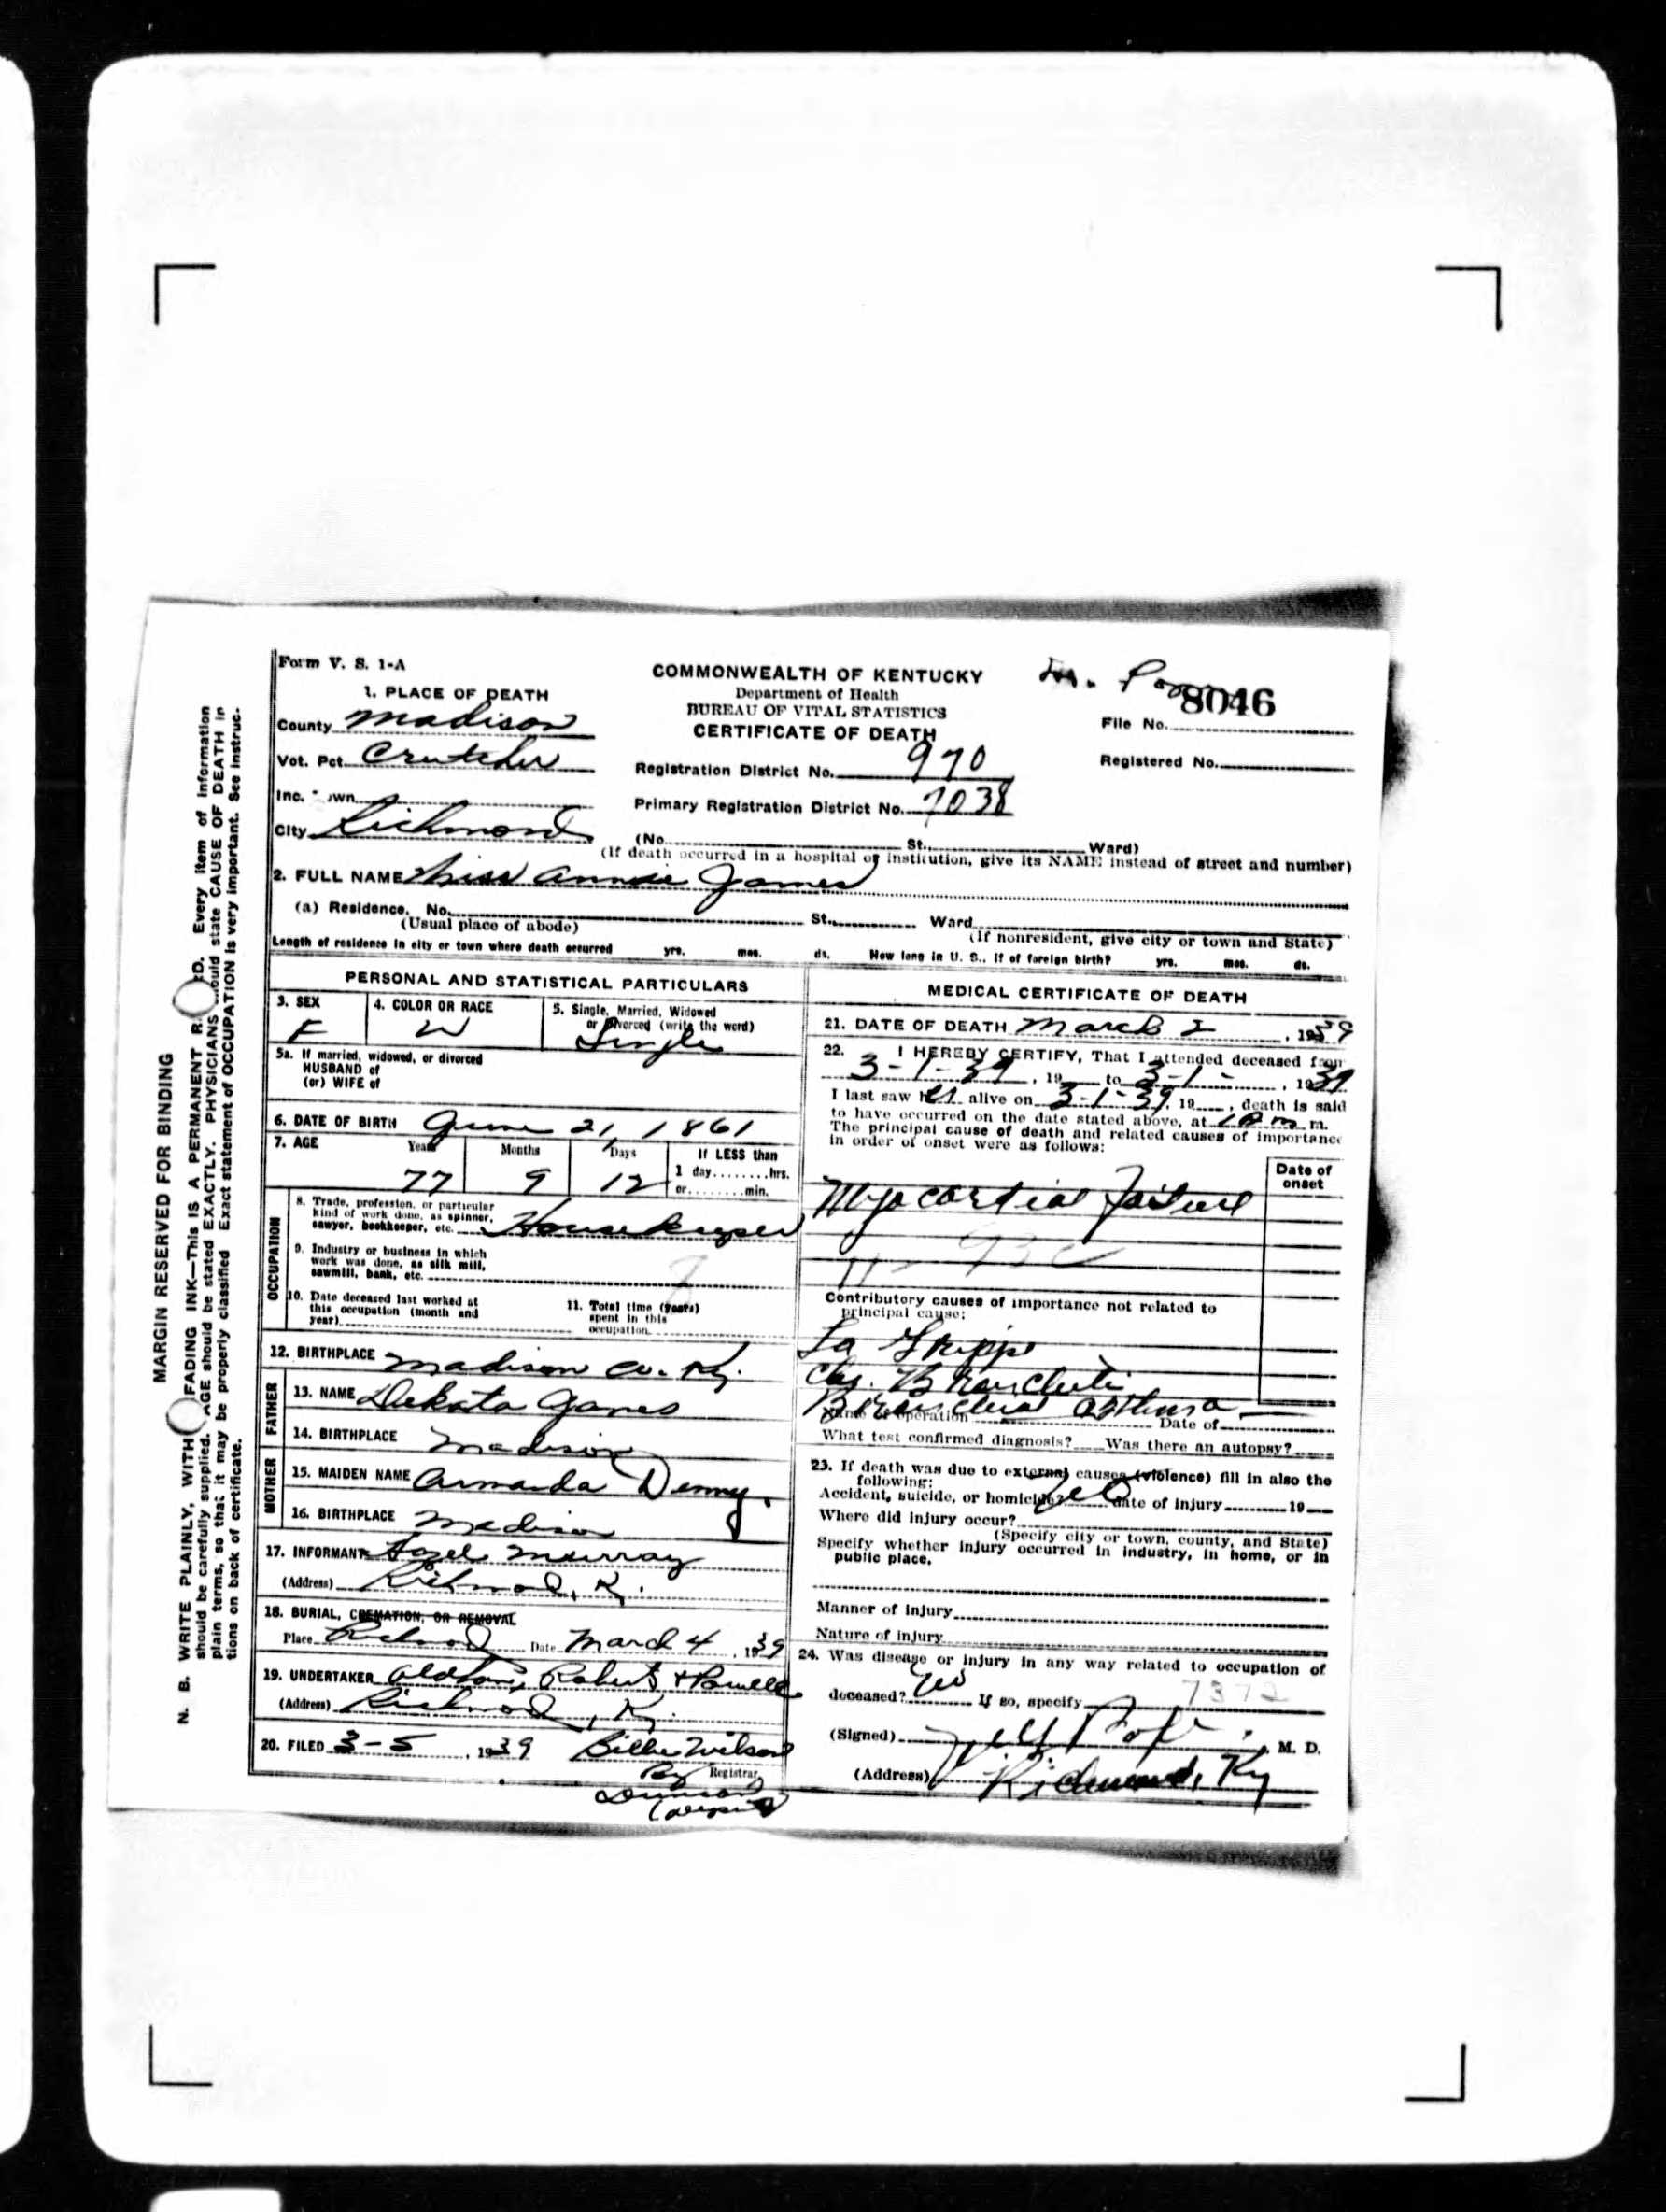 MARGIN RESERVED FOR BINDING
N. B. WRITE PLAINLY, WITH FADING INK—This IS A PERMANENT R D. Every item of information
should be carefully supplied. AGE should be stated EXACTLY. PHYSICIANS should state CAUSE OF DEATH in
plain terms, so that it may be properly classified. Exact statement of OCCUPATION is very important. See instruc-
tions on back of certificate.
Form V. S. 1-A
COMMONWEALTH OF KENTUCKY
Department of Health
BUREAU OF VITAL STATISTICS
CERTIFICATE OF DEATH
8046
File No.
Registered No.
1. PLACE OF DEATH
County Madison
Vot. Pct. Crutcher
Inc. own
City Richmond
Registration District No. 970
Primary Registration District No. 7038
(No. St., Ward)
(If death occurred in a hospital or institution, give its NAME instead of street and number)
2. FULL NAME Miss Annie James
(a) Residence. No. St., Ward
(Usual place of abode) (If nonresident, give city or town and State)
Length of residence in city or town where death occurred yrs. mos. ds. How long in U. S., if of foreign birth? yrs. mos. ds.
PERSONAL AND STATISTICAL PARTICULARS
3. SEX F
4. COLOR OR RACE W
5. Single, Married, Widowed
or Divorced (write the word)
Single
5a. If married, widowed, or divorced
HUSBAND of
(or) WIFE of
6. DATE OF BIRTH June 21, 1861
7. AGE Years Months Days If LESS than
1 day hrs.
or min.
77 9 12
OCCUPATION
8. Trade, profession, or particular
kind of work done, as spinner,
sawyer, bookkeeper, etc. Housekeeper
9. Industry or business in which
work was done, as silk mill,
sawmill, bank, etc.
10. Date deceased last worked at
this occupation (month and
year)
11. Total time (years)
spent in this
occupation
12. BIRTHPLACE Madison Co. Ky.
FATHER
13. NAME Dekota James
14. BIRTHPLACE Madison
MOTHER
15. MAIDEN NAME Armanda Denny.
16. BIRTHPLACE Madison
17. INFORMANT Hazel Murray
(Address) Richmond, Ky.
18. BURIAL, CREMATION, OR REMOVAL
Place Richmond Date March 4, 1939
19. UNDERTAKER Oldham, Roberts & Powell
(Address) Richmond, Ky.
20. FILED 3-5, 1939 Billie Wilson
Registrar
By
Duncan
(Deputy)
MEDICAL CERTIFICATE OF DEATH
21. DATE OF DEATH March 2, 1939
22. I HEREBY CERTIFY, That I attended deceased from
3-1-39, 19 to 3-1-, 1939
I last saw her alive on 3-1-39, 19, death is said
to have occurred on the date stated above, at m.
The principal cause of death and related causes of importance
in order of onset were as follows:
Date of
onset
Myocardial failure
93c
Contributory causes of importance not related to
principal cause:
La Grippe
Chr. Bronchitis
Bronchial asthma
Name of operation Date of
What test confirmed diagnosis? Was there an autopsy?
23. If death was due to external causes (violence) fill in also the
following:
Accident, suicide, or homicide? Date of injury 19
Where did injury occur?
(Specify city or town, county, and State)
Specify whether injury occurred in industry, in home, or in
public place.
Manner of injury
Nature of injury
24. Was disease or injury in any way related to occupation of
deceased? If so, specify 7372
(Signed) M. D.
(Address) Richmond, Ky